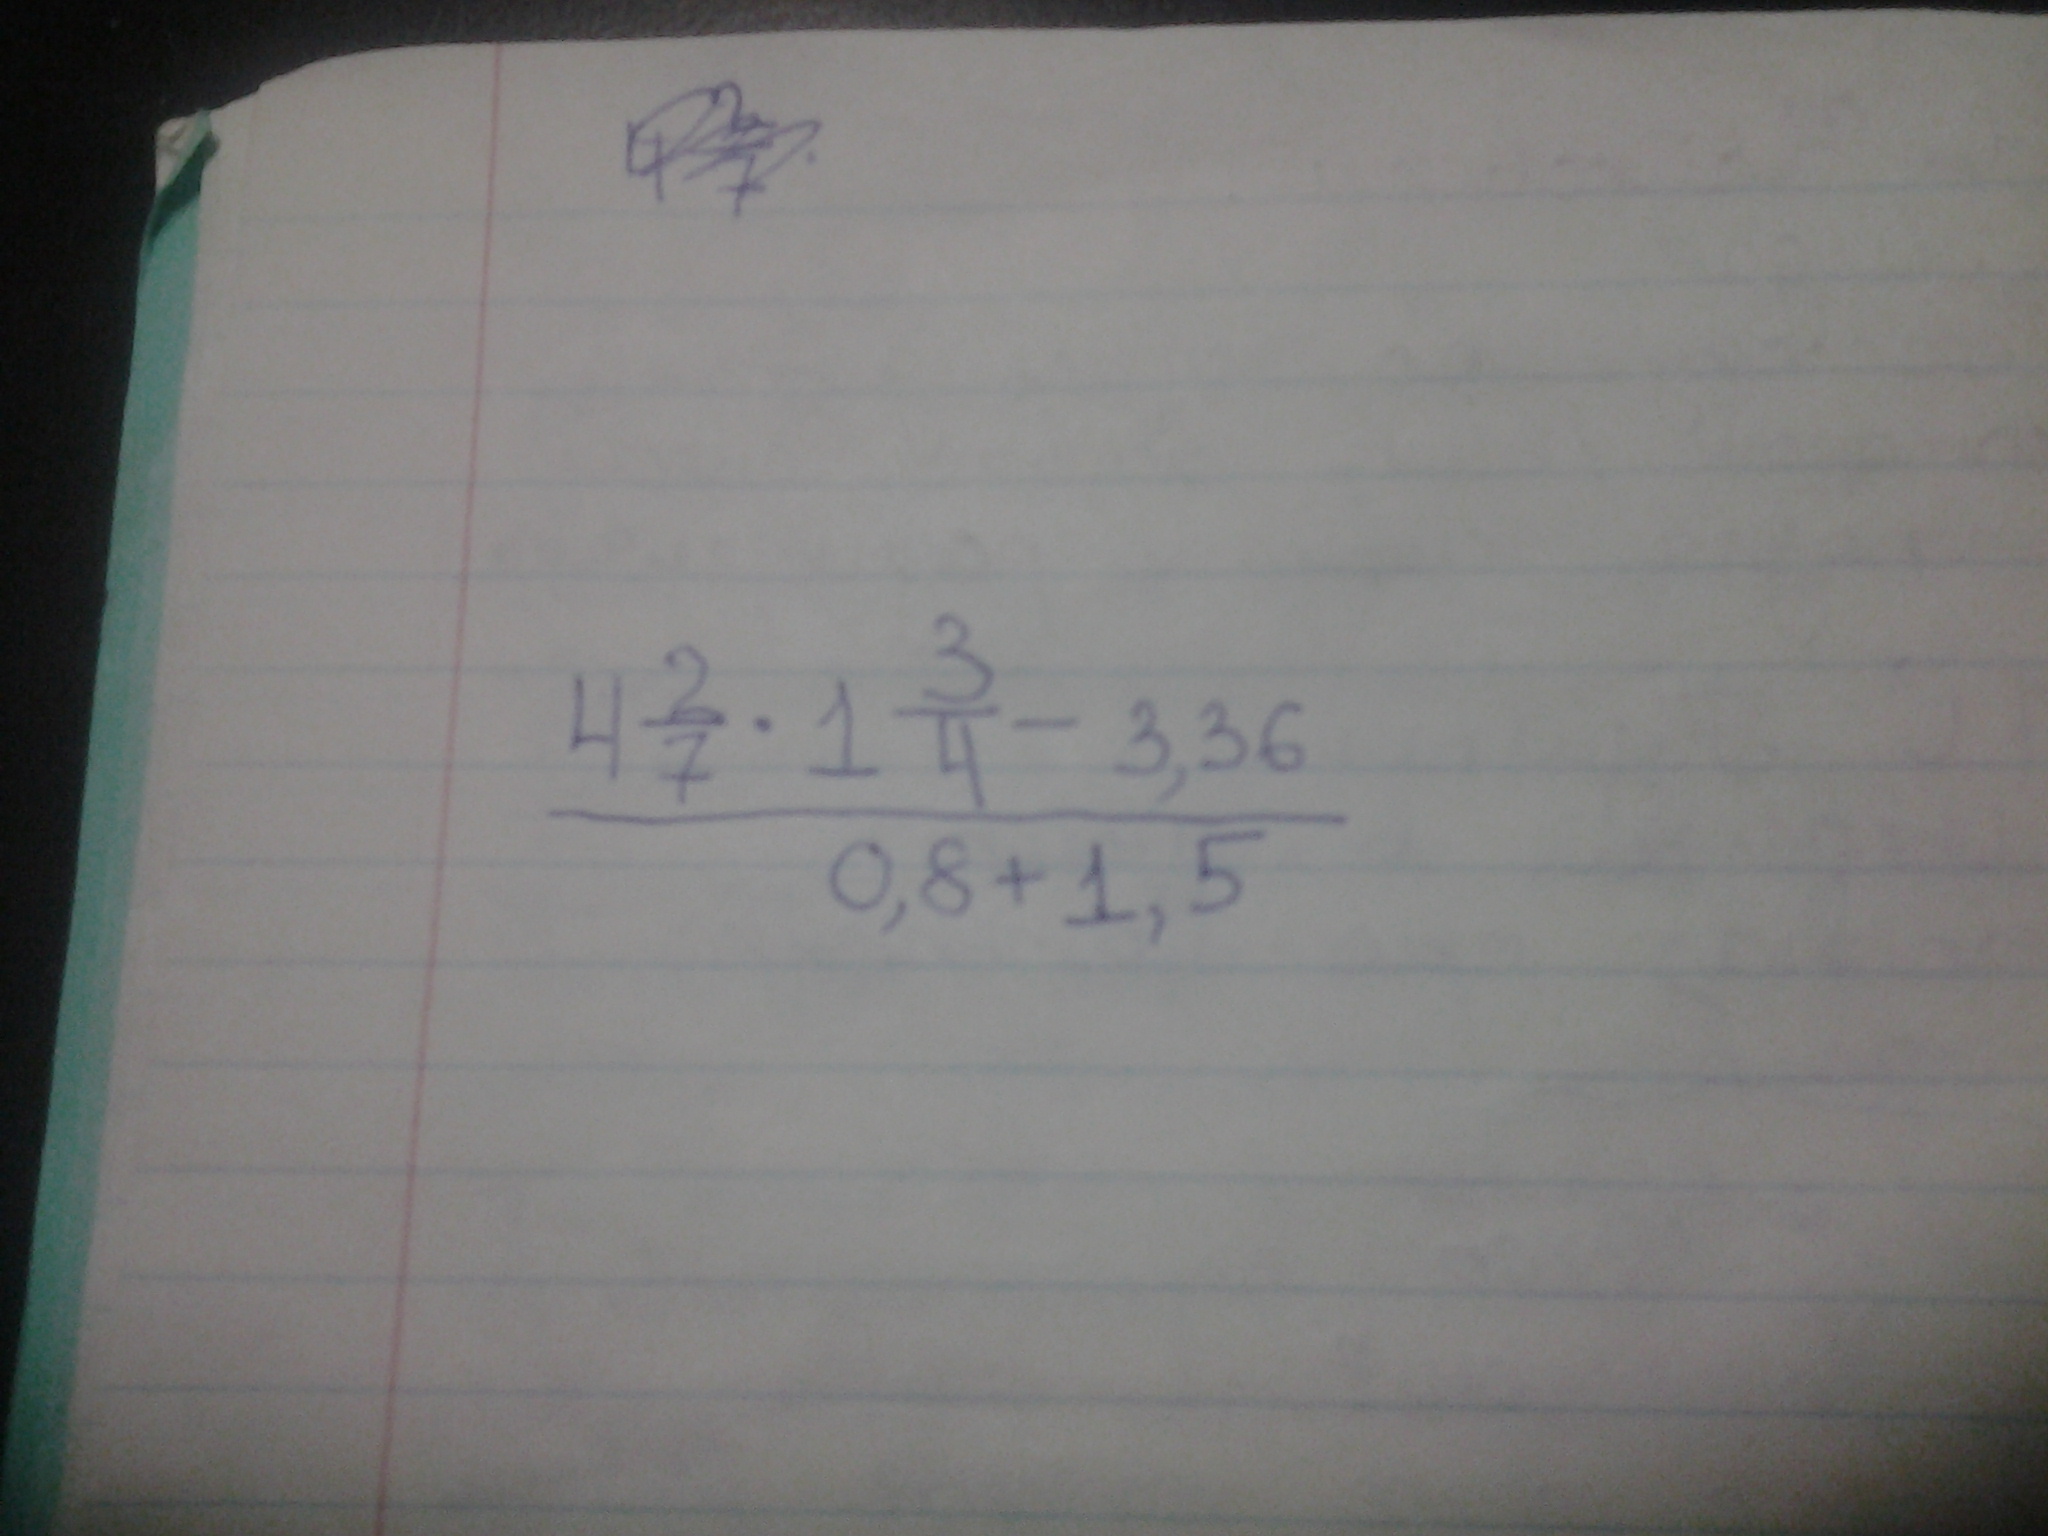 4 2/7 · 1 3/4 - 3,36
0,8 + 1,5